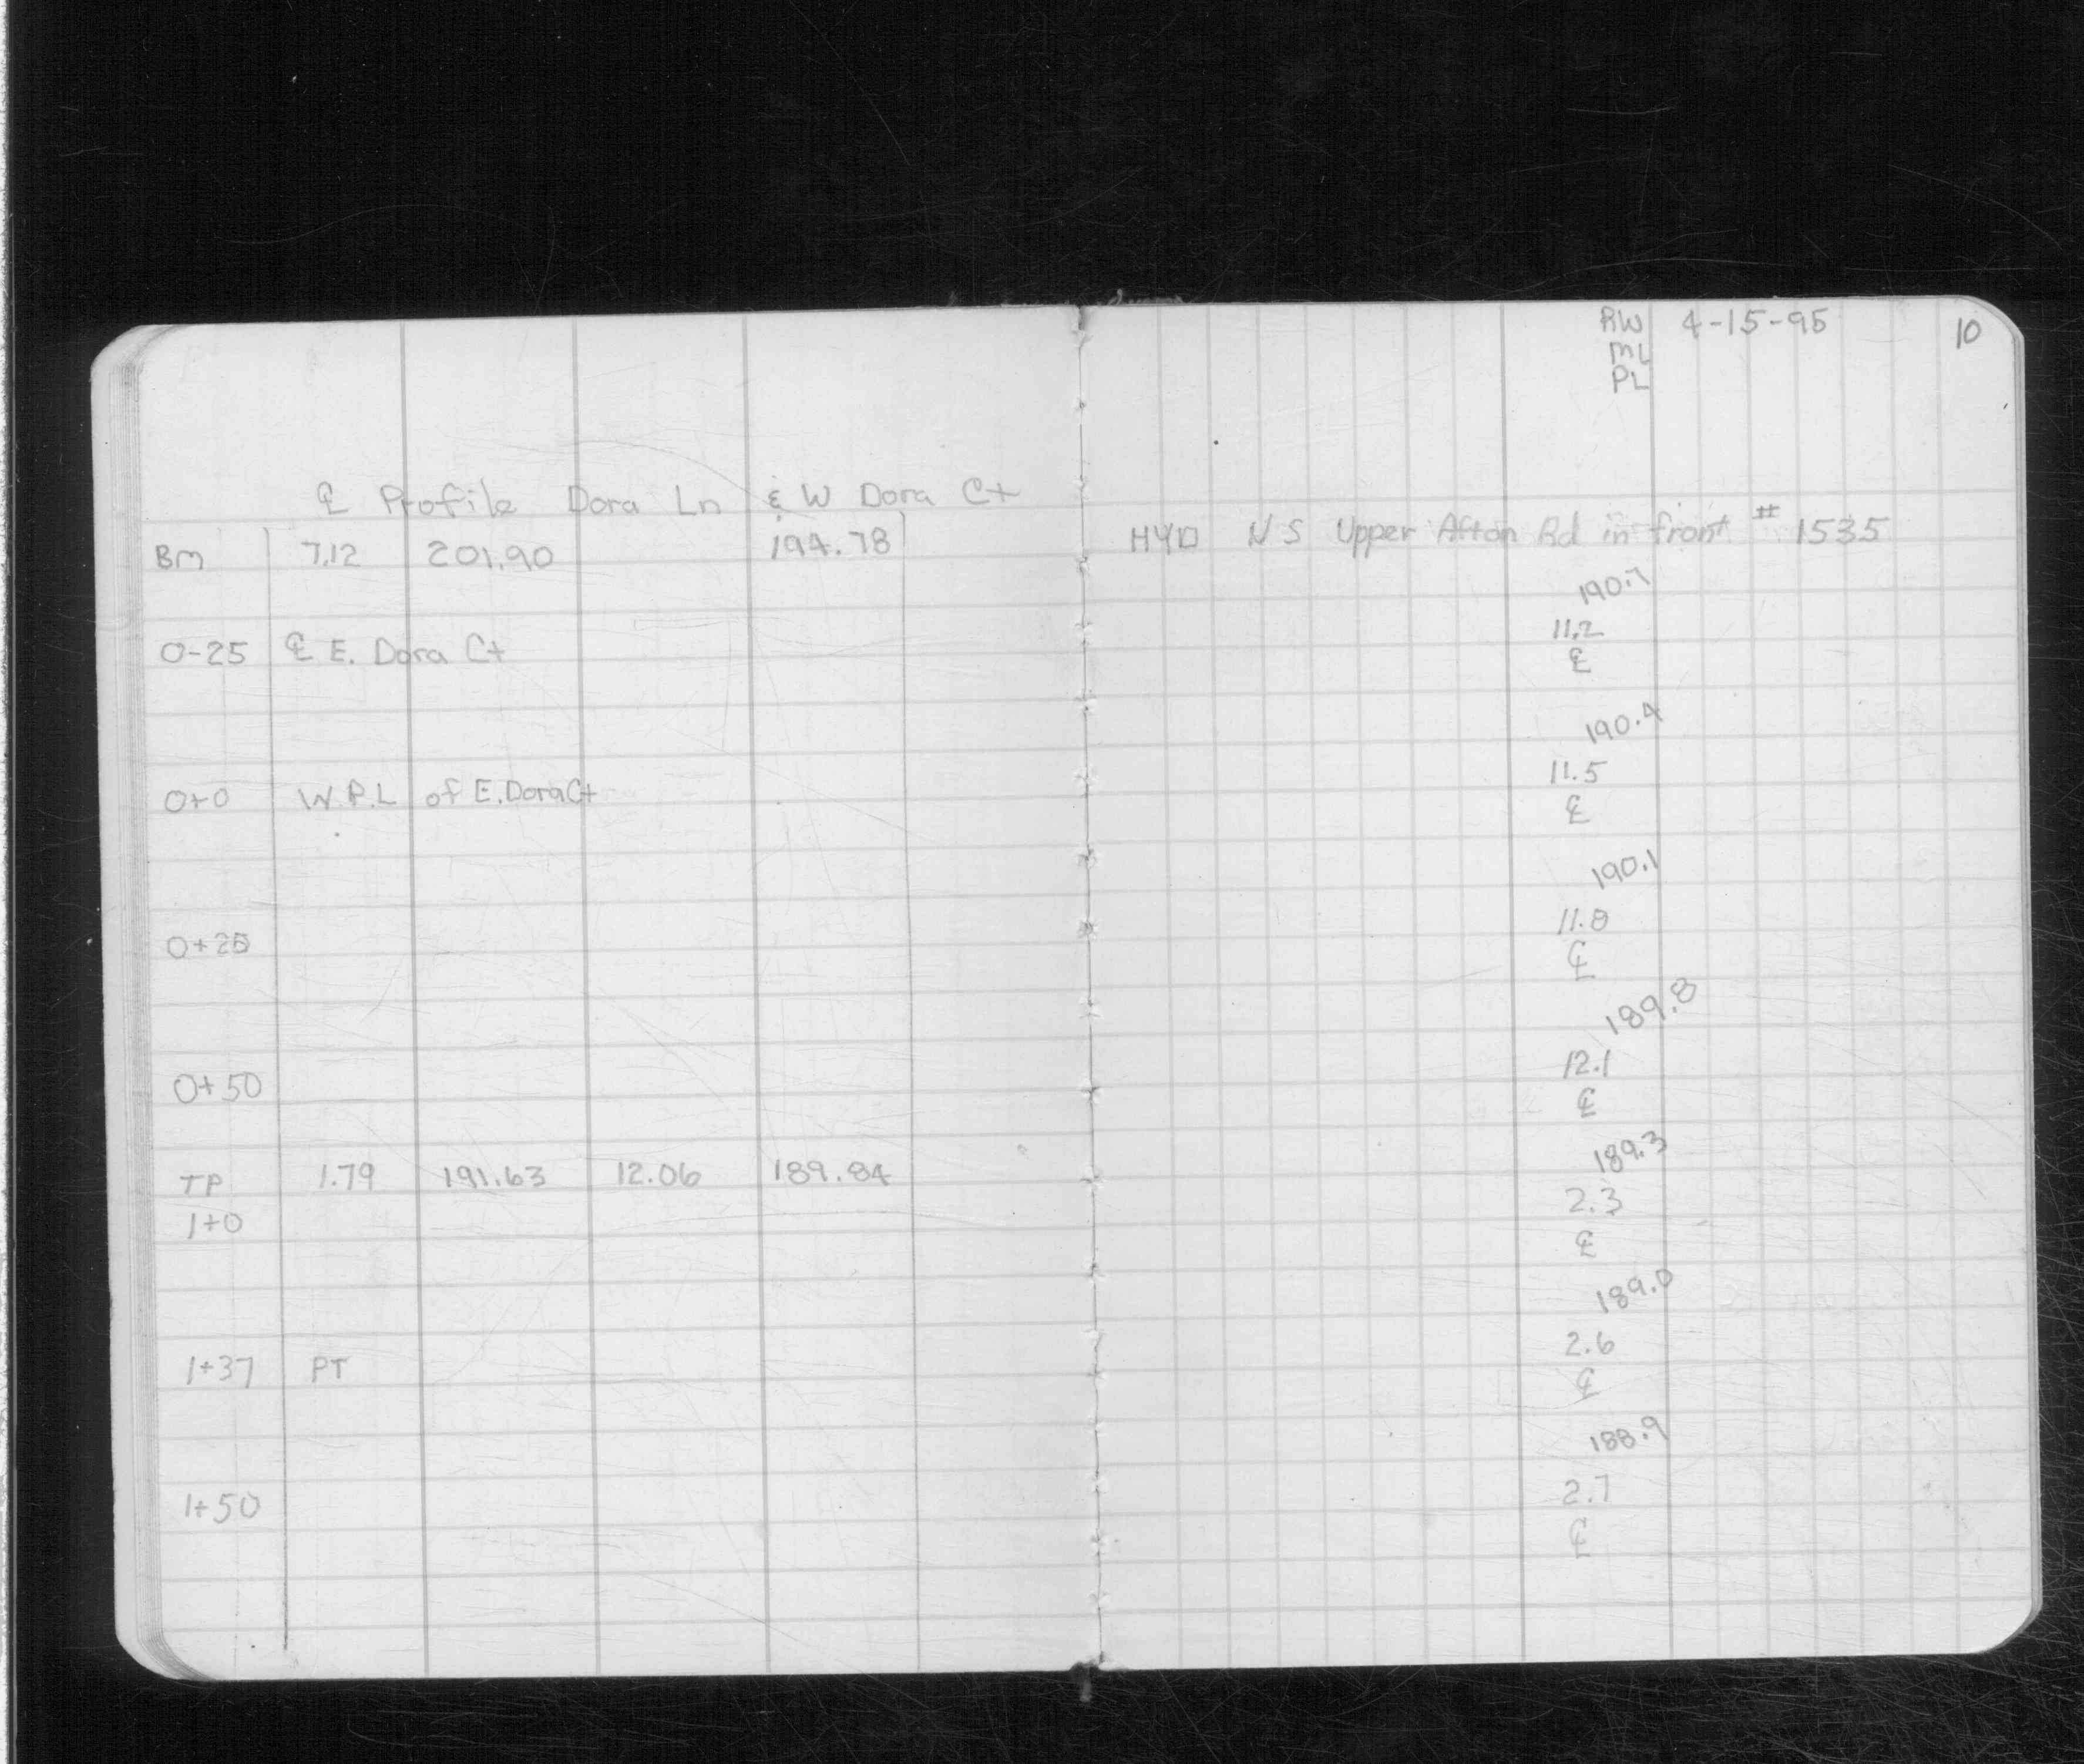 RW 4-15-95 10
ML
PL
℄ Profile Dora Ln & W Dora Ct
BM 7.12 201.90 194.78 HYD N S Upper Afton Rd in front # 1535
190.7
11.2
0-25 ℄ E. Dora Ct ℄
190.4
11.5
0+0 W.P.L of E. Dora Ct ℄
190.1
11.8
0+25 ℄
189.8
12.1
0+50 ℄
189.3
TP 1.79 191.63 12.06 189.84
2.3
1+0 ℄
189.0
2.6
1+37 PT ℄
188.9
2.7
1+50 ℄